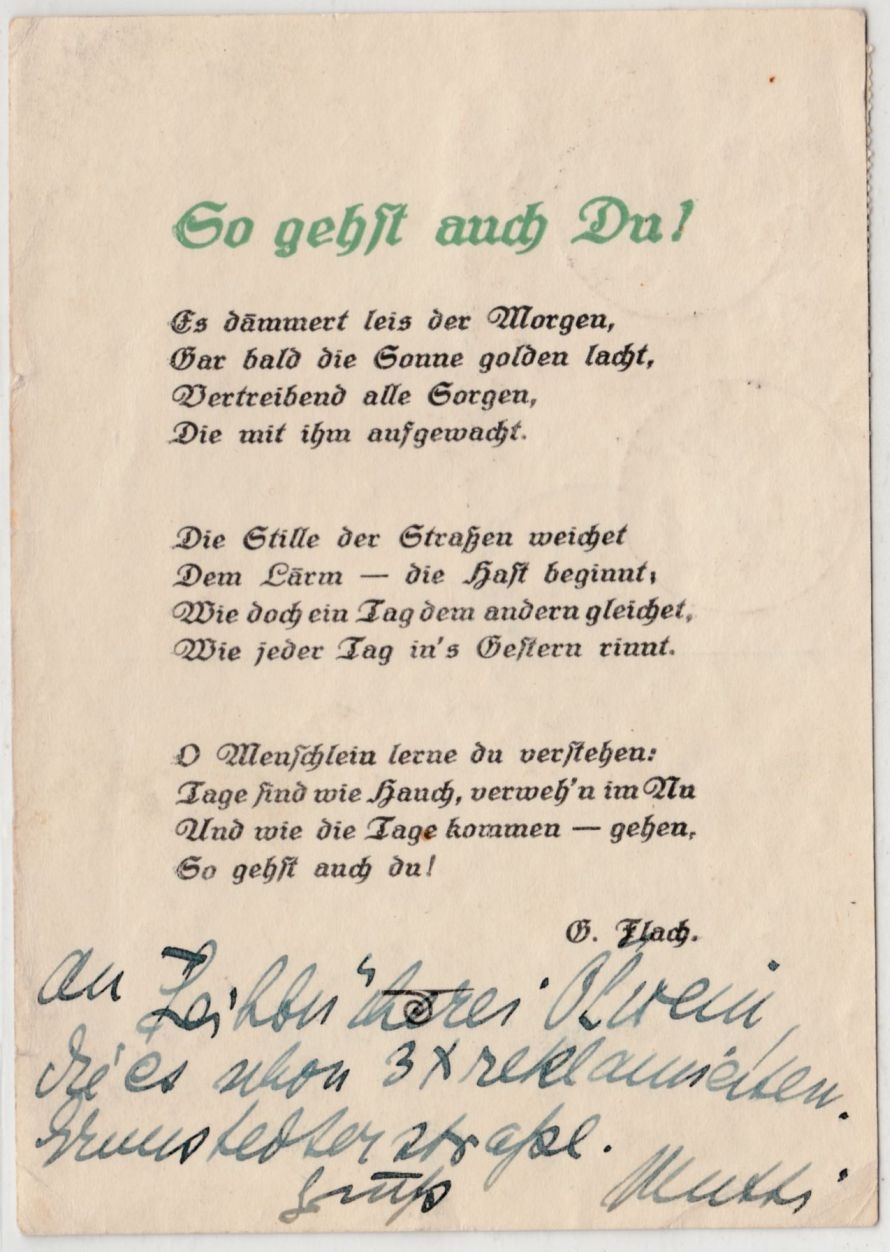 So gehst auch Du!
Es dämmert leis der Morgen,
Gar bald die Sonne golden lacht,
Vertreibend alle Sorgen,
Die mit ihm aufgewacht.
Die Stille der Straßen weichet
Dem Lärm — die Hast beginnt;
Wie doch ein Tag dem andern gleichet,
Wie jeder Tag in's Gestern rinnt.
O Menschlein lerne du verstehen:
Tage sind wie Hauch, verweh'n im Nu
Und wie die Tage kommen — gehen,
So gehst auch du!
G. Flach.
an Leihbücherei
die es schon 3x reklamierten.
straße.
Gruß Mutti